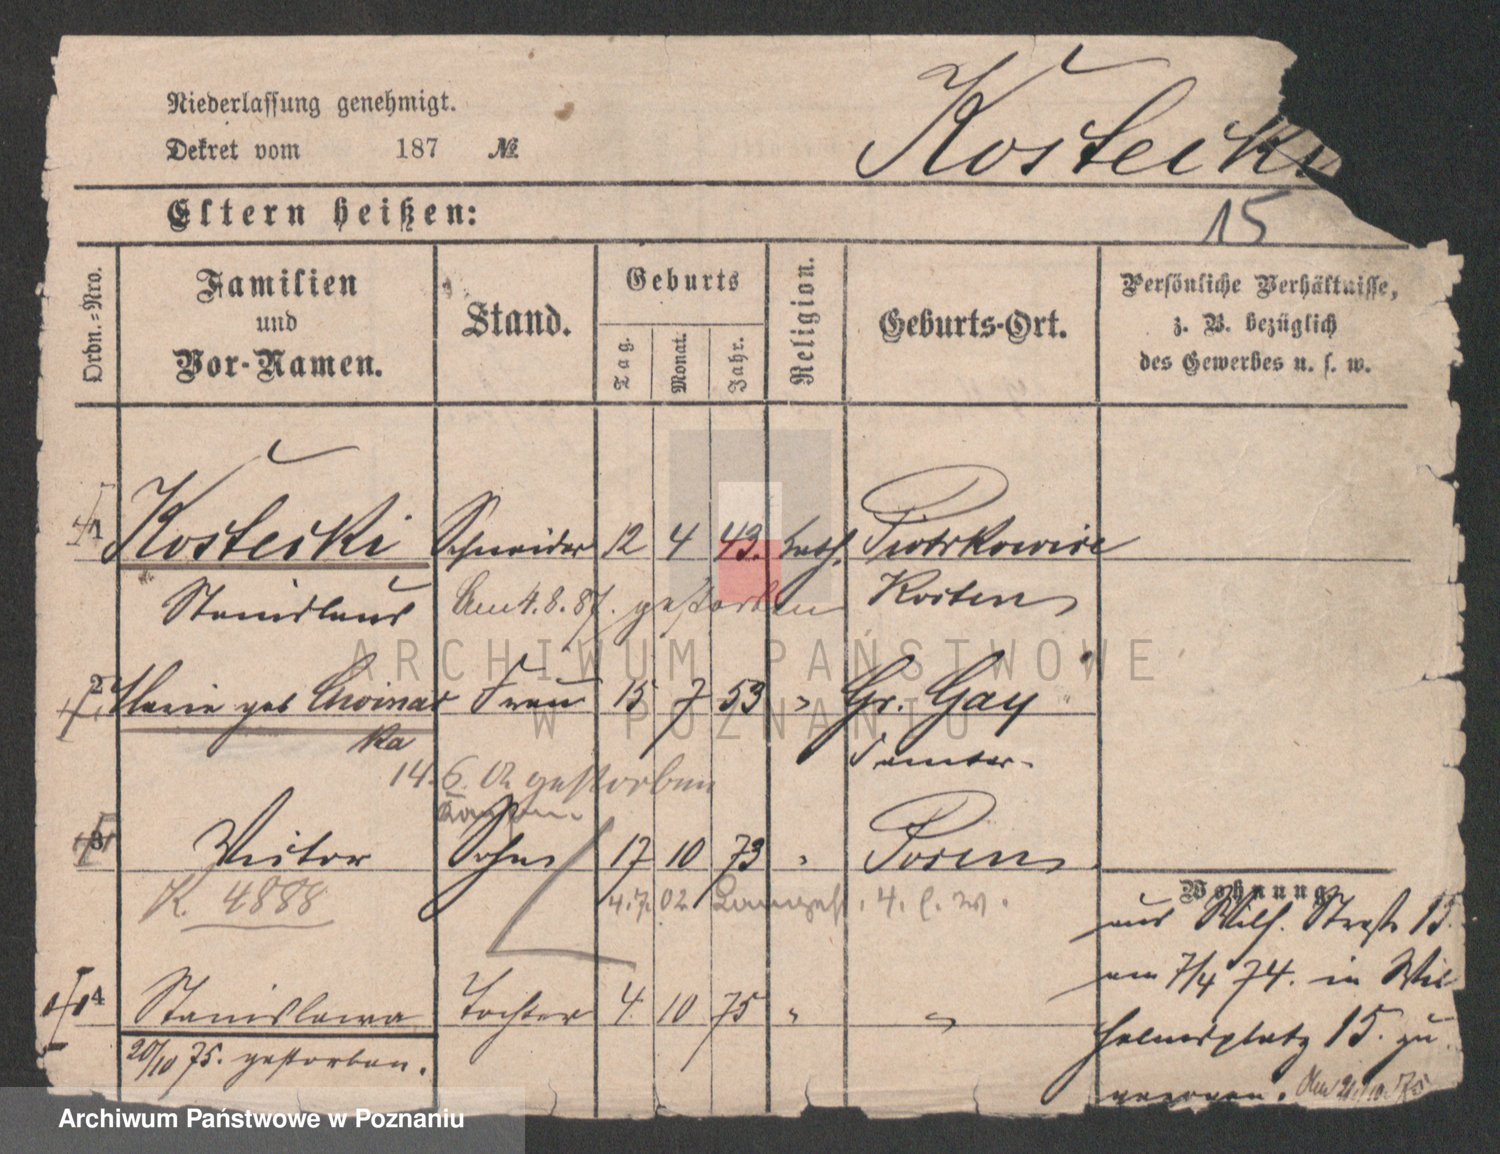 Niederlassung genehmigt.
Dekret vom 187 №
Kostecki
Eltern heißen:
15
Ordn.-Nro.
Familien
und
Vor-Namen.
Stand.
Geburts
Tag.
Monat.
Jahr.
Religion.
Geburts-Ort.
Persönliche Verhältnisse,
z. B. bezüglich
des Gewerbes u. s. w.
1 Kostecki Schneider 12 4 43. kath. Piotrkowice
Stanislaus Am 4.8.87. gestorben Kosten
ARCHIWUM PAŃSTWOWE
W POZNANIU
2 Marie geb Choinac Frau 15 7 53 " Gr. Gay
ka Samter.
14. 6. 02 gestorben
3 Victor Sohn 17 10 73 " Posen
K. 4888 4.7. 02
Wohnung
aus Wilh. Straße 15.
am 7/4 74. in Wil
helmsplatz 15. zu
gezogen.
4 Stanislawa Tochter 4. 10 75 " "
20/10 75. gestorben.
Archiwum Państwowe w Poznaniu